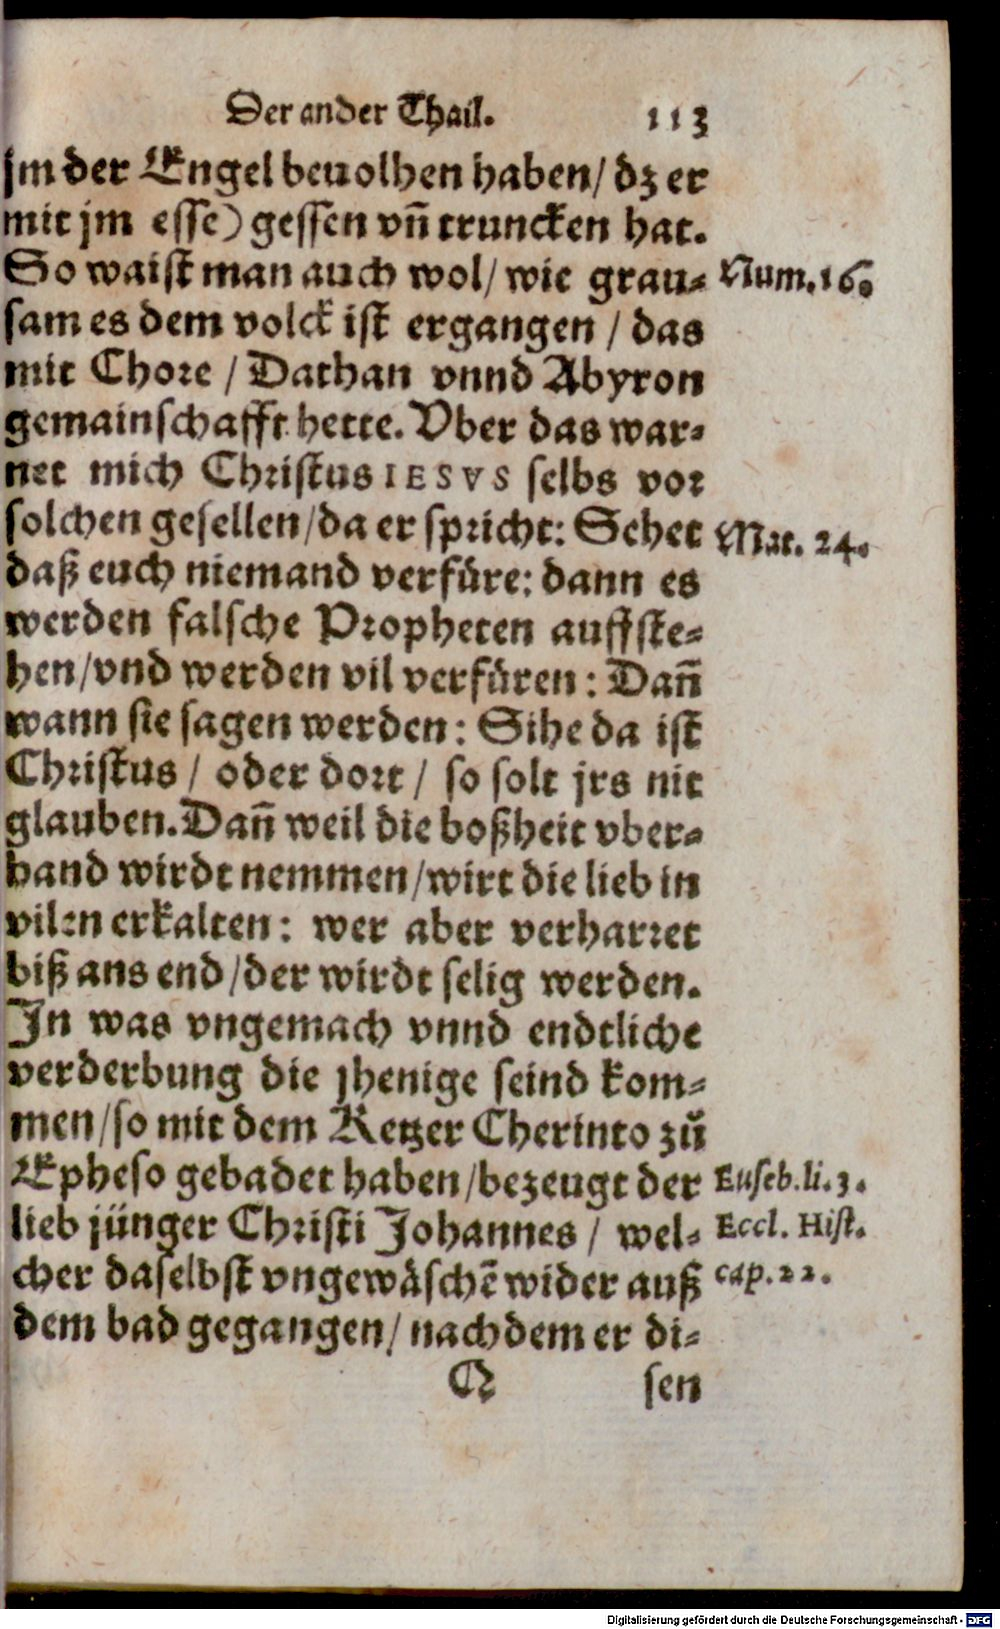 Der ander Thail. 113
jm der Engel beuolhen haben/ dz er
mit jm esse) gessen vñ truncken hat.
So waist man auch wol/ wie grau⸗ Num. 16.
sam es dem volck ist ergangen / das
mit Chore / Dathan vnnd Abyron
gemainschafft hette. Vber das war⸗
net mich Christus IESVS selbs vor
solchen gesellen/ da er spricht: Sehet Mat. 24.
daß euch niemand verfüre: dann es
werden falsche Propheten auffste⸗
hen/ vnd werden vil verfüren: Dañ
wann sie sagen werden: Sihe da ist
Christus / oder dort / so solt jrs nit
glauben. Dañ weil die boßheit vber⸗
hand wirdt nemmen/ wirt die lieb in
vilen erkalten: wer aber verharret
biß ans end/ der wirdt selig werden.
In was vngemach vnnd endtliche
verderbung die jhenige seind kom⸗
men/ so mit dem Ketzer Cherinto zů
Epheso gebadet haben/ bezeugt der Euseb. li. 3.
lieb jünger Christi Johannes / wel⸗ Eccl. Hist.
cher daselbst vngewäschẽ wider auß cap. 22.
dem bad gegangen/ nachdem er di⸗
Q sen
Digitalisierung gefördert durch die Deutsche Forschungsgemeinschaft - DFG